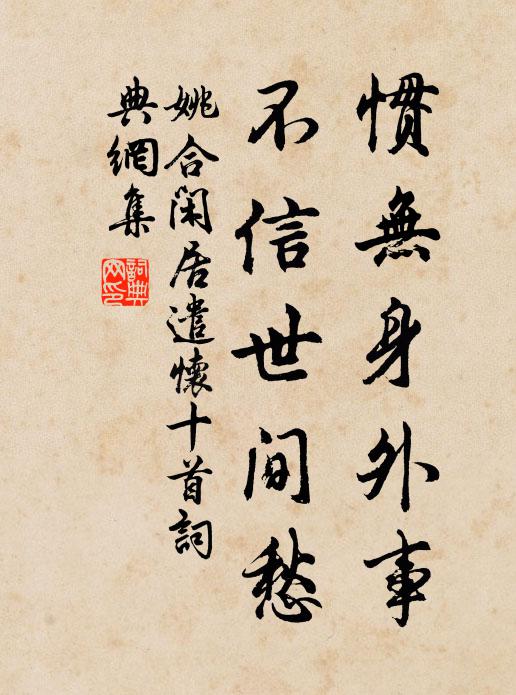 慣無身外事
不信世間愁
姚合閑居遣懷十首詞
典網集
詞典
网印